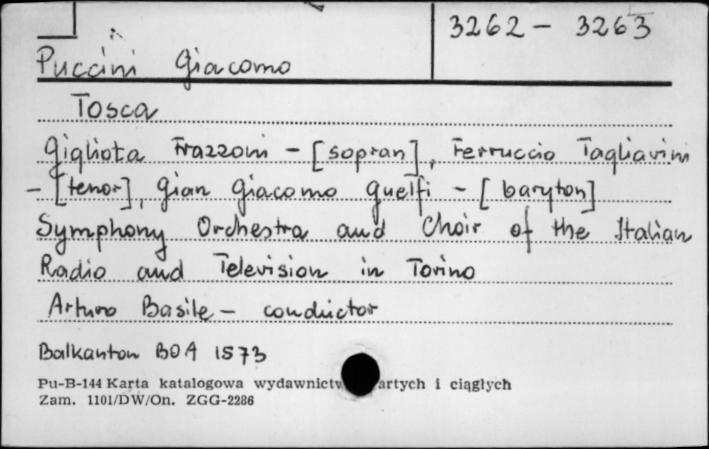 3262 - 3263
Puccini Giacomo
Tosca
Gigliota Frazzoni - [sopran], Ferruccio Tagliavini
- [tenor], Gian Giacomo Guelfi - [baryton]
Symphony Orchestra and Choir of the Italian
Radio and Television in Torino
Arturo Basile - conductor
Balkanton BOA 1573
Pu-B-144 Karta katalogowa wydawnictw artych i ciągłych
Zam. 1101/DW/On. ZGG-2286